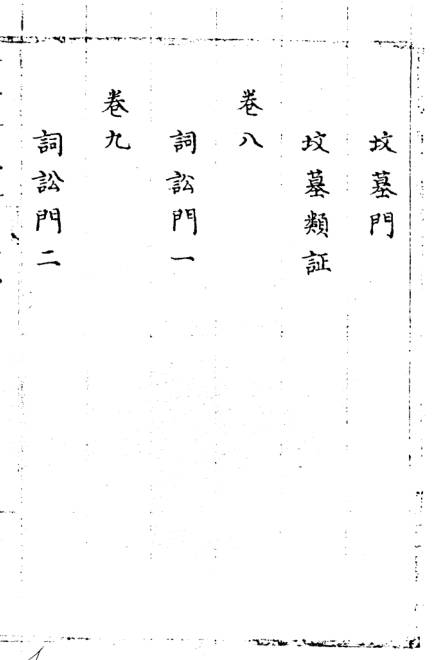 坟墓門
坟墓類証
卷八
詞訟門一
卷九
詞訟門二